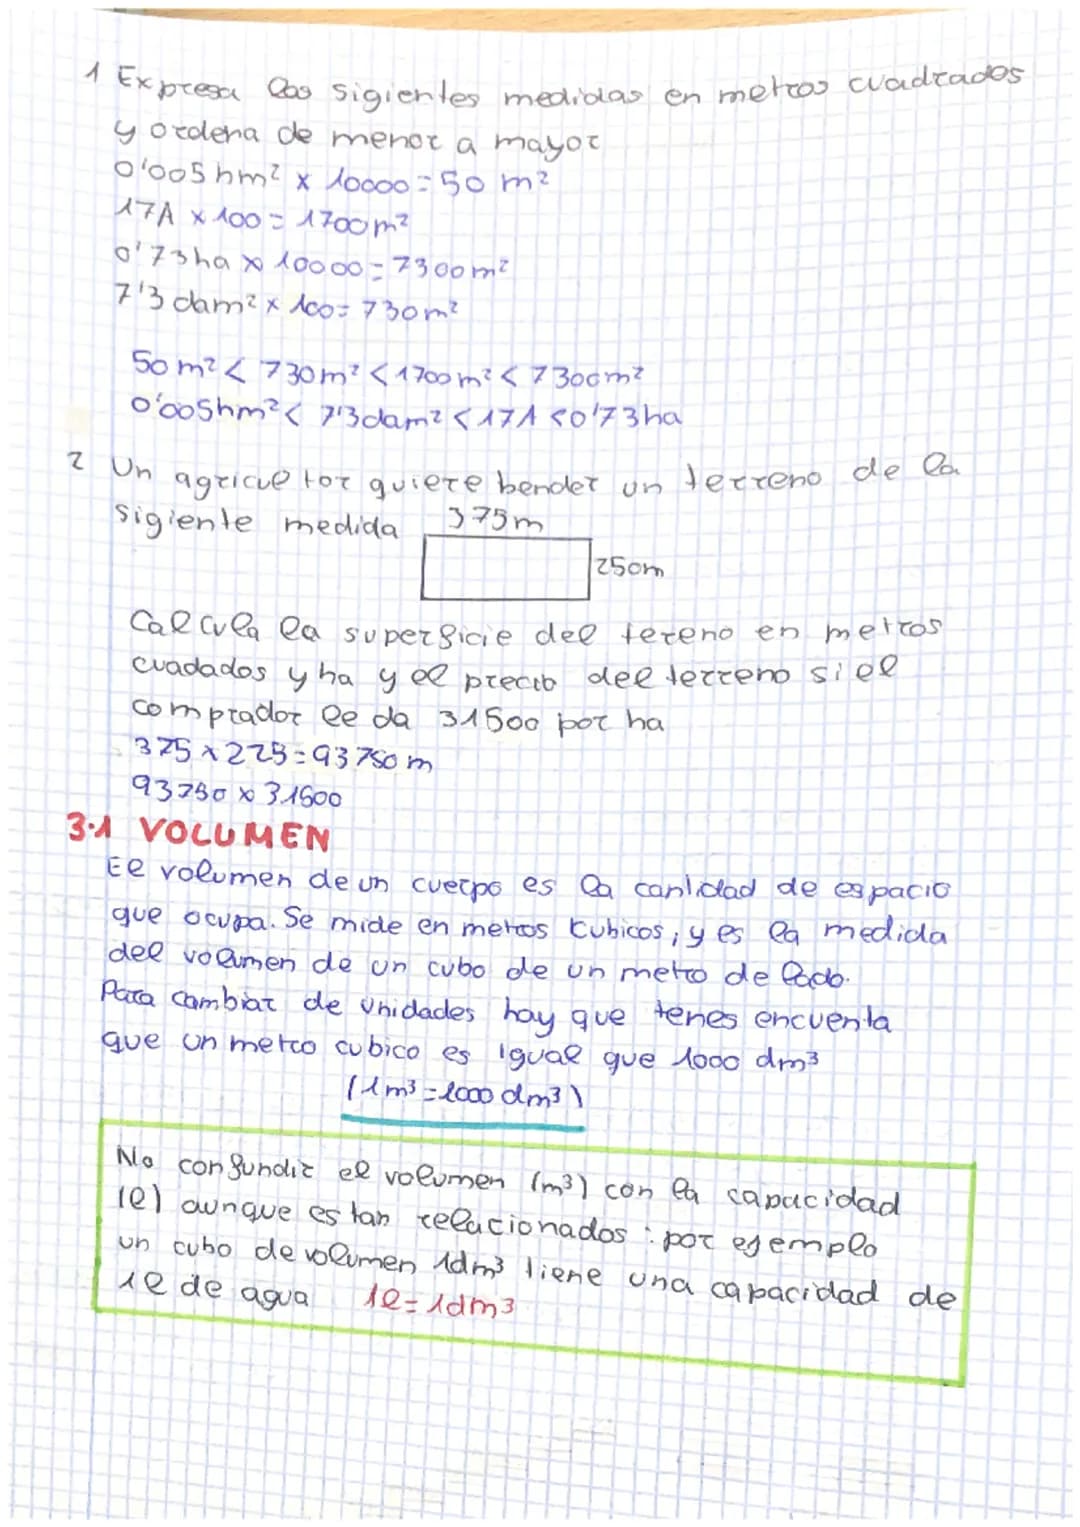 1 Expresa las sigientes medidas en metros cuadrados
y ordena de menor a mayor
0'005 hm² x 10000 = 50 m²
17A x 100 = 1700 m²
0'73 ha x 10000 = 7300 m²
7'3 dam² x 100 = 730 m²
50 m² < 730 m² < 1700 m² < 7300 m²
0'005hm² < 7'3 dam² < 17A < 0'73 ha
2 Un agricultor quiere bender un terreno de la
sigiente medida 375m
250m
Calcula la superficie del tereno en metros
cuadados y ha y el precio del terreno si el
comprador le da 31500 por ha
375 x 225 = 93750 m
93750 x 31500
3.1 VOLUMEN
El volumen de un cuerpo es la cantidad de espacio
que ocupa. Se mide en metros kubicos, y es la medida
del volumen de un cubo de un metro de lado.
Para cambiar de unidades hay que tenes encuenta
que un metro cubico es igual que 1000 dm³
(1m³ = 1000 dm³)
No confundir el volumen (m³) con la capacidad
(l) aunque estan relacionados : por ejemplo
un cubo de volumen 1dm³ tiene una capacidad de
1l de agua 1l = 1dm³